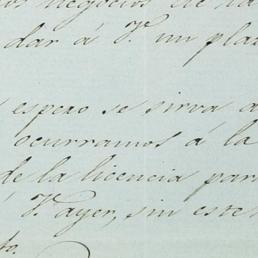 os negocios de la
dar á V. un plaz
espero se sirva a
ocurramos á la
de la licencia par
V. ayer, sin este
to.